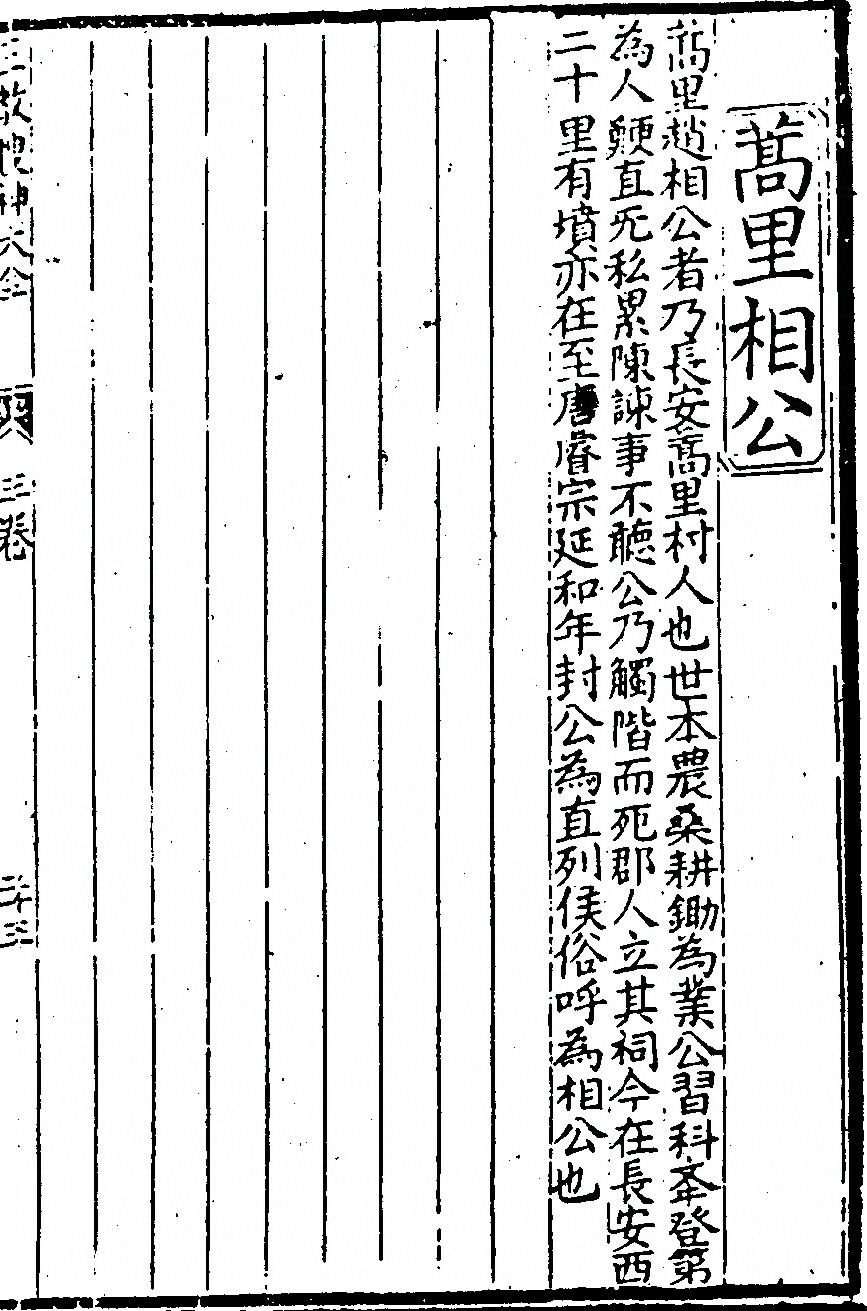 蒿里相公
蒿里趙相公者乃長安蒿里村人也世本農桑耕鋤為業公習科舉登第
為人鯁直无私累陳諫事不聽公乃觸階而死郡人立其祠今在長安西
二十里有墳亦在至唐睿宗延和年封公為直列侯俗呼為相公也
三教搜神大全
三卷
二十三